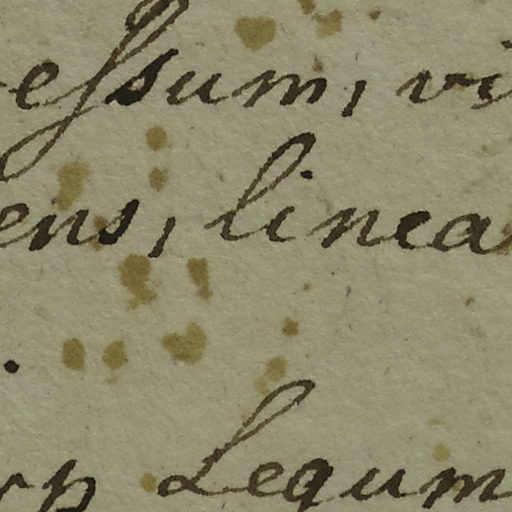 eſsum, vi
ens, linea
.
rp Legum